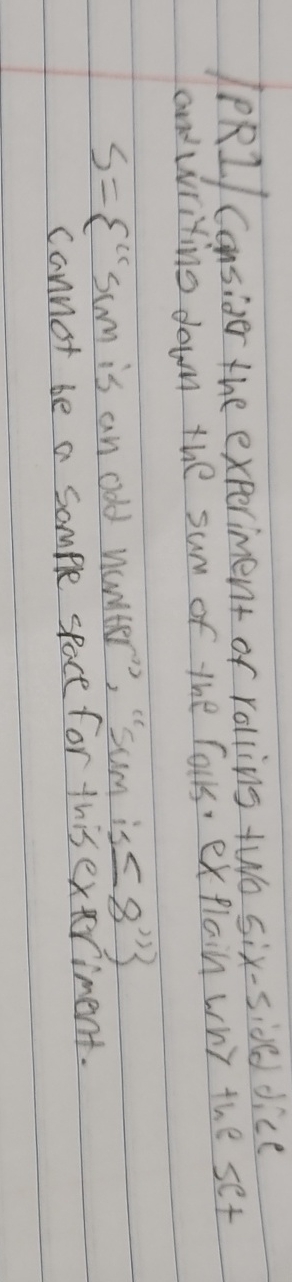 /PR1/ Consider the experiment of rolling two six-sided dice
and writing down the sum of the rolls. explain why the set
S={"sum is an odd number", "sum is ≤ 8"}
cannot be a sample space for this experiment.